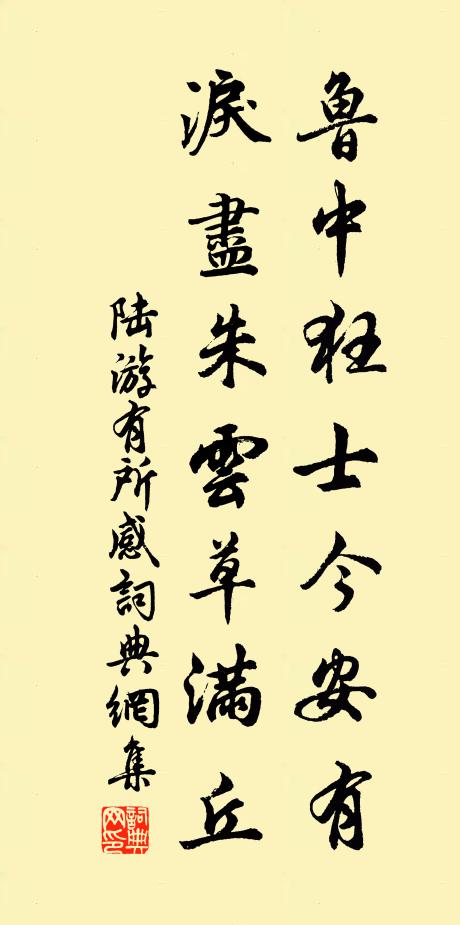 魯中狂士今安有
淚盡朱雲草滿丘
陆游有所感詞典網集
詞典网印